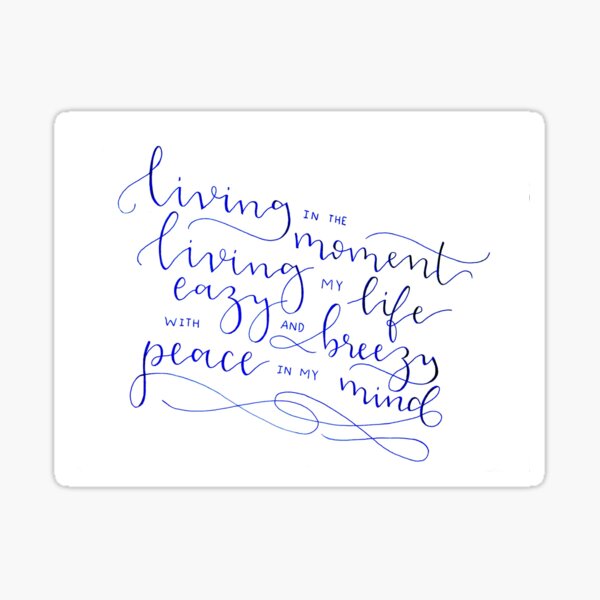 living IN THE
moment
living MY life
eazy AND breezy
WITH
peace IN MY mind